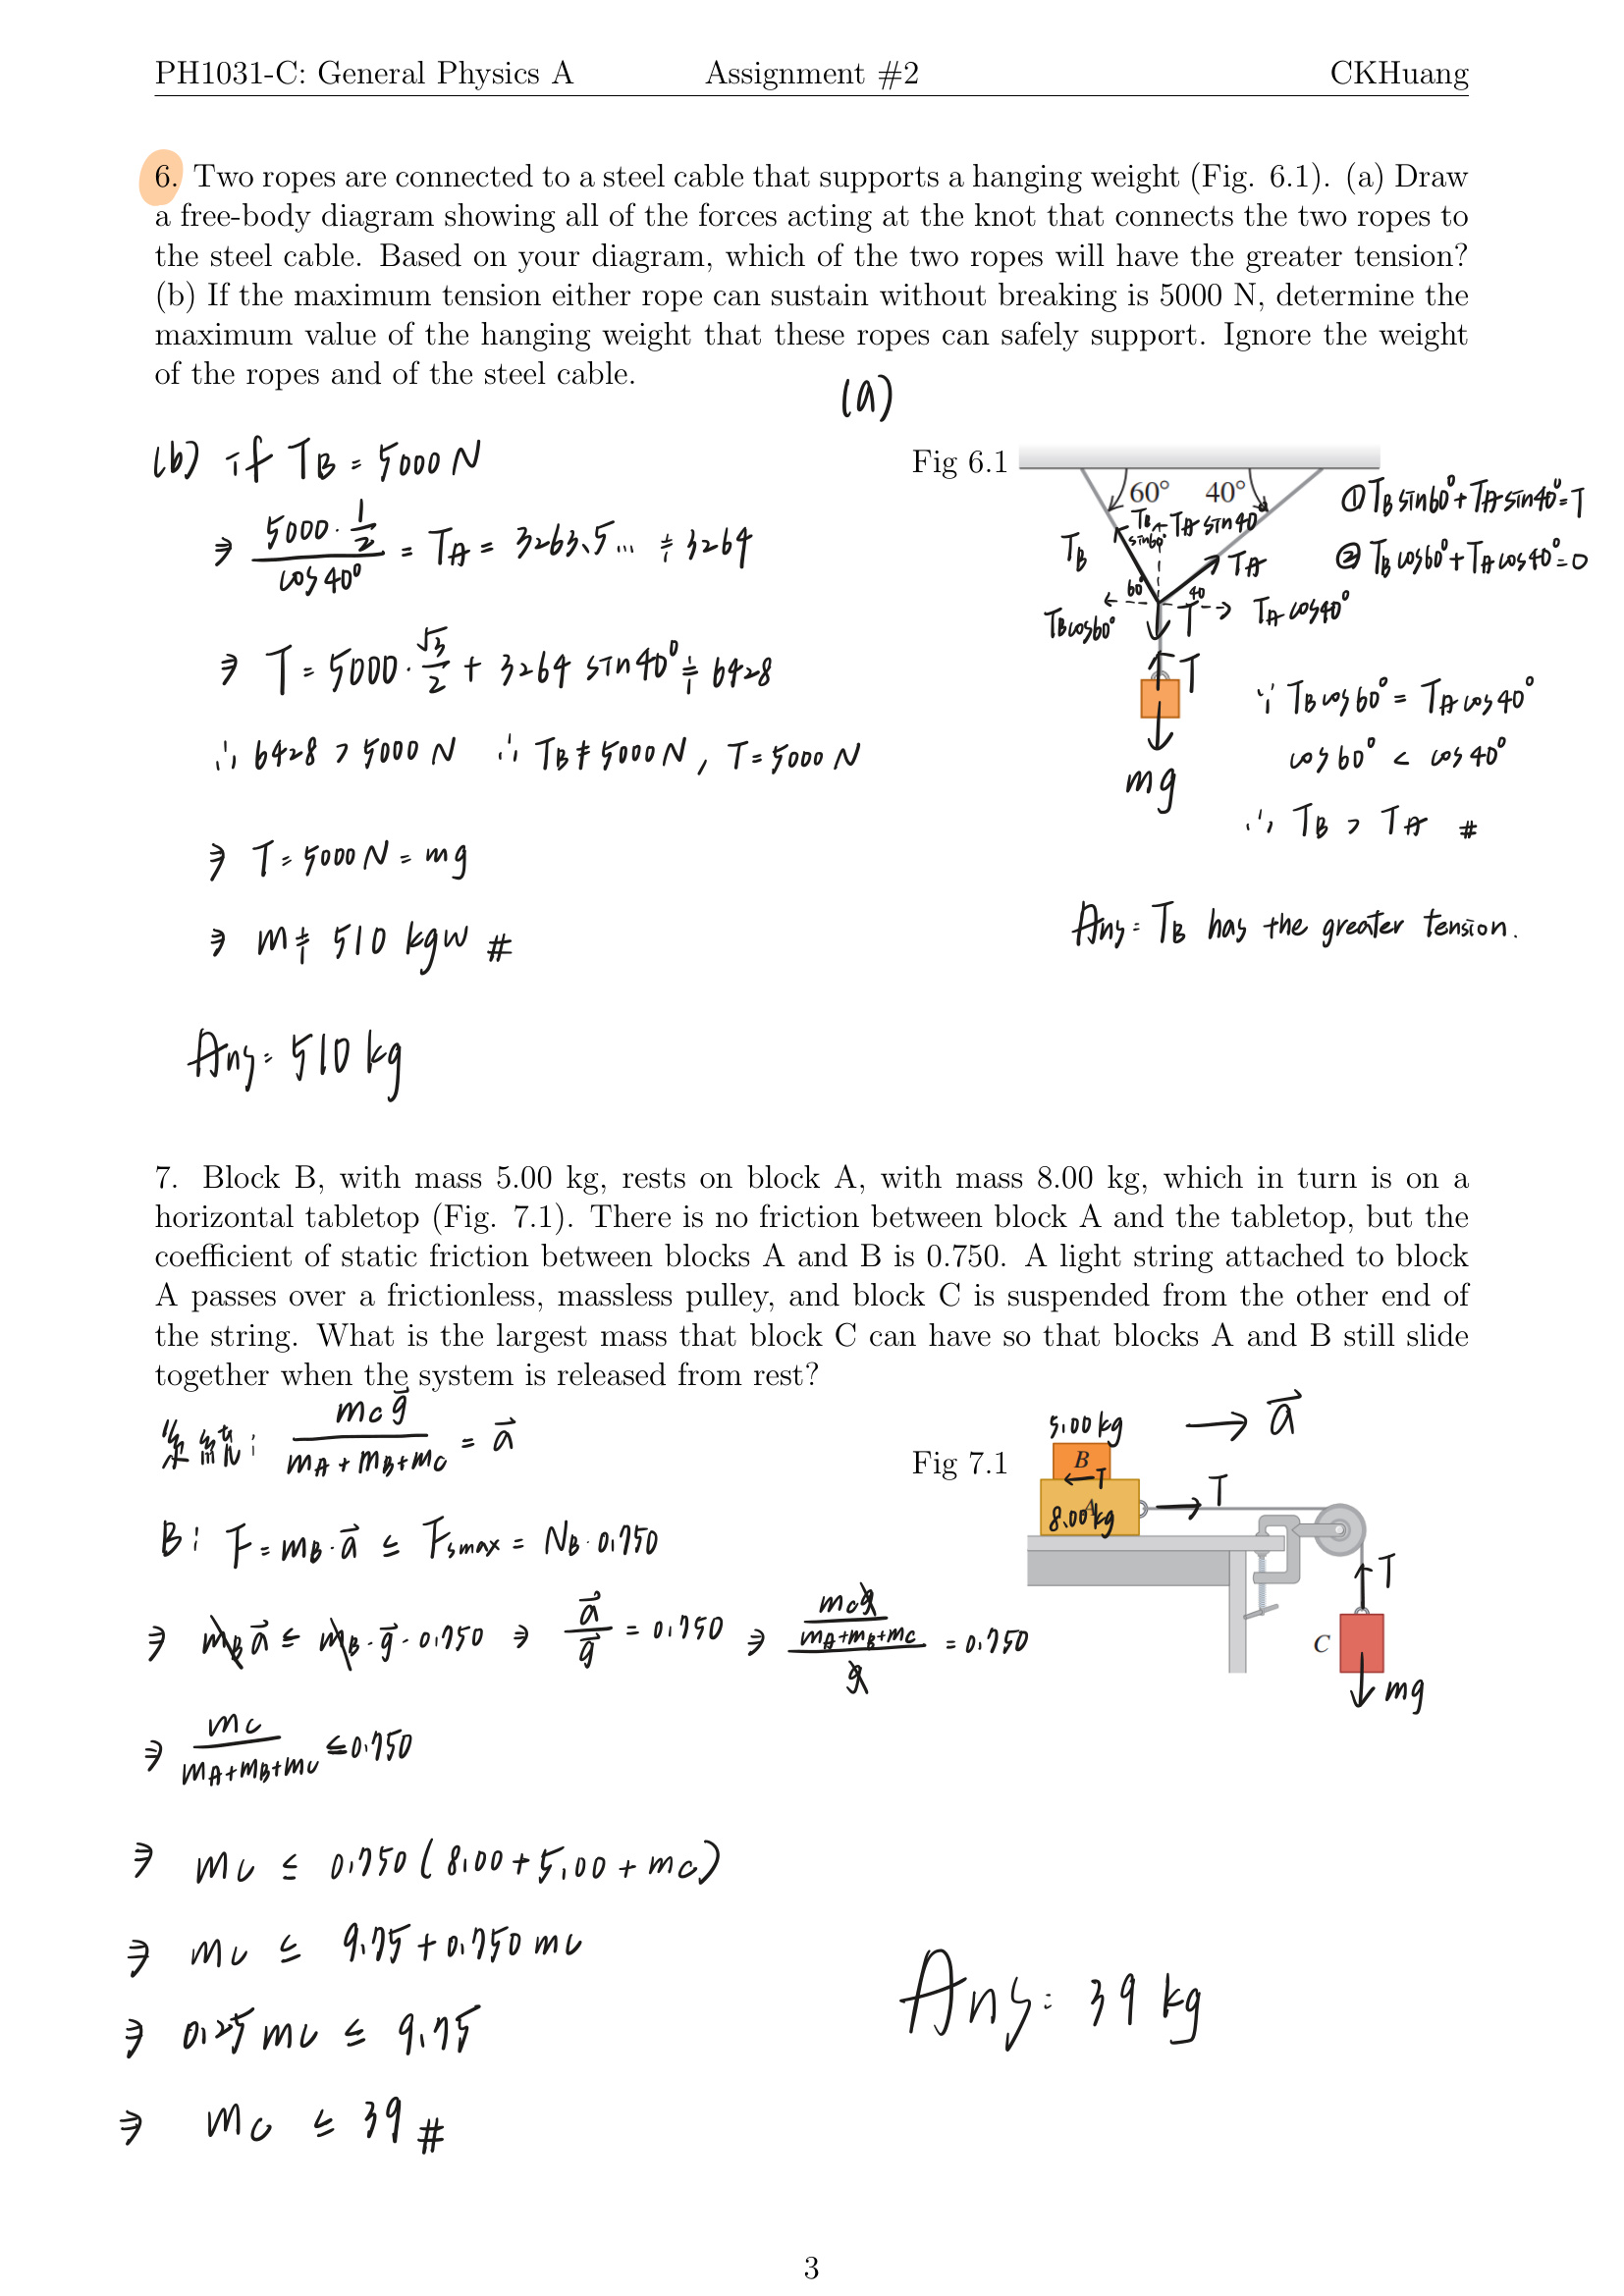 PH1031-C: General Physics A Assignment #2 CKHuang
6. Two ropes are connected to a steel cable that supports a hanging weight (Fig. 6.1). (a) Draw
a free-body diagram showing all of the forces acting at the knot that connects the two ropes to
the steel cable. Based on your diagram, which of the two ropes will have the greater tension?
(b) If the maximum tension either rope can sustain without breaking is 5000 N, determine the
maximum value of the hanging weight that these ropes can safely support. Ignore the weight
of the ropes and of the steel cable.
(a)
(b) if TB = 5000 N
⇒ (5000 · 1/2) / cos40° = TA = 3263.5... ≒ 3264
⇒ T = 5000 · √3/2 + 3264 sin40° ≒ 6428
∵ 6428 > 5000 N ∴ TB ≠ 5000 N, T = 5000 N
⇒ T = 5000 N = mg
⇒ m ≒ 510 kgw #
Ans = 510 kg
Fig 6.1
60° 40°
TB sin60° TA sin40°
TB
TA
60° 40
TB cos60° T TA cos40°
T
mg
① TB sin60° + TA sin40° = T
② TB cos60° + TA cos40° = 0
∵ TB cos60° = TA cos40°
cos60° < cos40°
∴ TB > TA #
Ans = TB has the greater tension.
7. Block B, with mass 5.00 kg, rests on block A, with mass 8.00 kg, which in turn is on a
horizontal tabletop (Fig. 7.1). There is no friction between block A and the tabletop, but the
coefficient of static friction between blocks A and B is 0.750. A light string attached to block
A passes over a frictionless, massless pulley, and block C is suspended from the other end of
the string. What is the largest mass that block C can have so that blocks A and B still slide
together when the system is released from rest?
系統: mC g⃗ / (mA + mB + mC) = a⃗
B: F = mB · a⃗ ≤ Fsmax = NB · 0.750
⇒ mB a⃗ ≤ mB · g⃗ · 0.750 ⇒ a⃗ / g⃗ = 0.750 ⇒ (mC g / (mA+mB+mC)) / g = 0.750
⇒ mC / (mA+mB+mC) ≤ 0.750
⇒ mC ≤ 0.750 (8.00 + 5.00 + mC)
⇒ mC ≤ 9.75 + 0.750 mC
⇒ 0.25 mC ≤ 9.75
⇒ mC ≤ 39 #
Fig 7.1
5.00 kg → a⃗
B
T
A
8.00 kg
T
T
C
mg
Ans: 39 kg
3